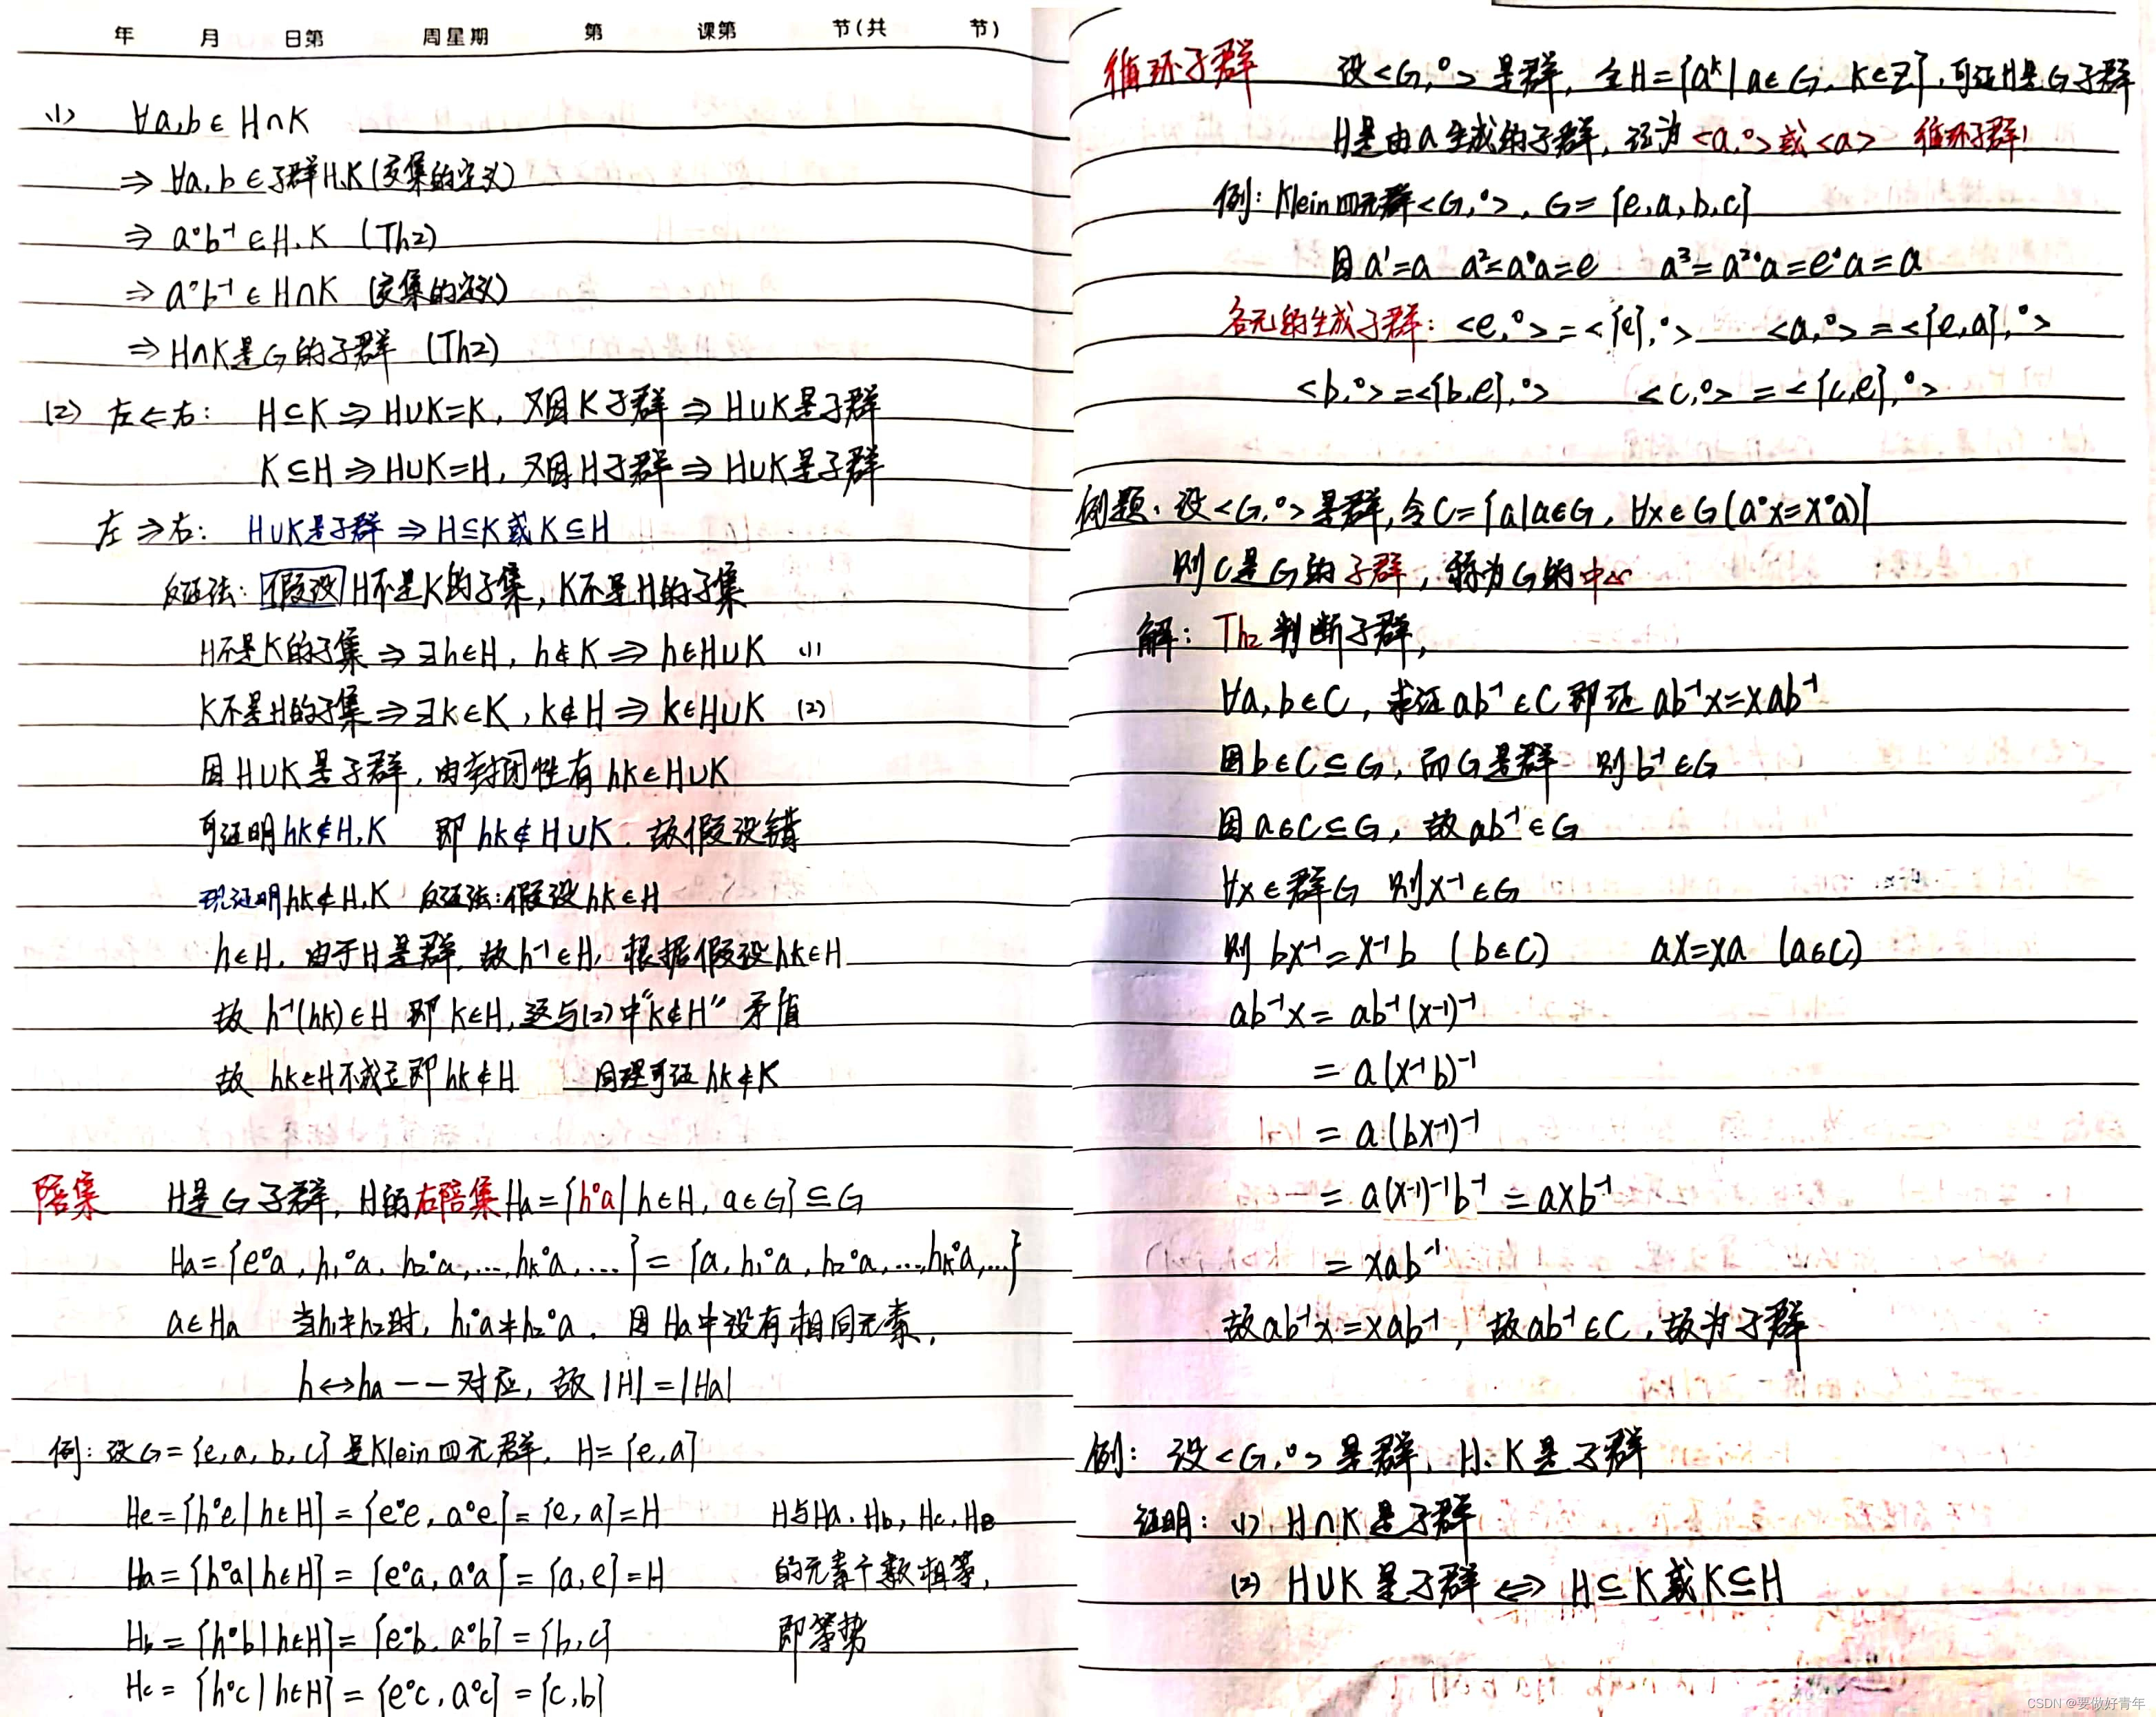 年 月 日第 周星期 第 课第 节(共 节)
(1) ∀a,b∈H∩K
⇒ ∀a,b∈子群H,K(交集的定义)
⇒ a°b⁻¹∈H,K (Th2)
⇒ a°b⁻¹∈H∩K (交集的定义)
⇒ H∩K是G的子群 (Th2)
(2) 左⇐右: H⊆K⇒H∪K=K, 又因K子群⇒H∪K是子群
K⊆H⇒H∪K=H, 又因H子群⇒H∪K是子群
左⇒右: H∪K是子群⇒H⊆K或K⊆H
反证法: 假设H不是K的子集, K不是H的子集
H不是K的子集⇒∃h∈H, h∉K⇒h∈H∪K (1)
K不是H的子集⇒∃k∈K, k∉H⇒k∈H∪K (2)
因H∪K是子群, 由封闭性有hk∈H∪K
可证明hk∉H,K 即hk∉H∪K. 故假设错
现证明hk∉H,K 反证法:假设hk∈H
h∈H, 由于H是群, 故h⁻¹∈H, 根据假设hk∈H
故h⁻¹(hk)∈H 即k∈H, 这与(2)中“k∉H”矛盾
故hk∈H不成立即hk∉H 同理可证hk∉K
陪集 H是G子群, H的右陪集Ha={h°a|h∈H, a∈G}⊆G
Ha={e°a, h₁°a, h₂°a,…,hₖ°a,…}={a, h₁°a, h₂°a,…,hₖ°a,…}
a∈Ha 当h₁≠h₂时, h₁°a≠h₂°a. 因Ha中没有相同元素,
h↔ha 一一对应, 故|H|=|Ha|
例: 设G={e,a,b,c}是Klein四元群, H={e,a}
He={h°e|h∈H}={e°e, a°e}={e,a}=H H与Ha, Hb, Hc, He
Ha={h°a|h∈H}={e°a, a°a}={a,e}=H 的元素个数相等,
Hb={h°b|h∈H}={e°b, a°b}={b,c} 即等势
Hc={h°c|h∈H}={e°c, a°c}={c,b}
循环子群 设<G,°>是群, 令H={aᵏ|a∈G, k∈Z}, 可证H是G子群
H是由a生成的子群, 记为<a,°>或<a> 循环子群!
例: Klein四元群<G,°>, G={e,a,b,c}
因a¹=a a²=a°a=e a³=a²°a=e°a=a
各元的生成子群: <e,°>=<{e},°> <a,°>=<{e,a},°>
<b,°>=<{b,e},°> <c,°>=<{c,e},°>
例题: 设<G,°>是群, 令C={a|a∈G, ∀x∈G(a°x=x°a)}
则C是G的子群, 称为G的中心
解: Th2判断子群,
∀a,b∈C, 求证ab⁻¹∈C即证ab⁻¹x=xab⁻¹
因b∈C⊆G, 而G是群 则b⁻¹∈G
因a∈C⊆G, 故ab⁻¹∈G
∀x∈群G 则x⁻¹∈G
则bx⁻¹=x⁻¹b (b∈C) ax=xa (a∈C)
ab⁻¹x=ab⁻¹(x⁻¹)⁻¹
=a(x⁻¹b)⁻¹
=a(bx⁻¹)⁻¹
=a(x⁻¹)⁻¹b⁻¹=axb⁻¹
=xab⁻¹
故ab⁻¹x=xab⁻¹, 故ab⁻¹∈C, 故为子群
例: 设<G,°>是群, H、K是子群
证明: (1) H∩K是子群
(2) H∪K是子群⇔H⊆K或K⊆H
CSDN @要做好青年